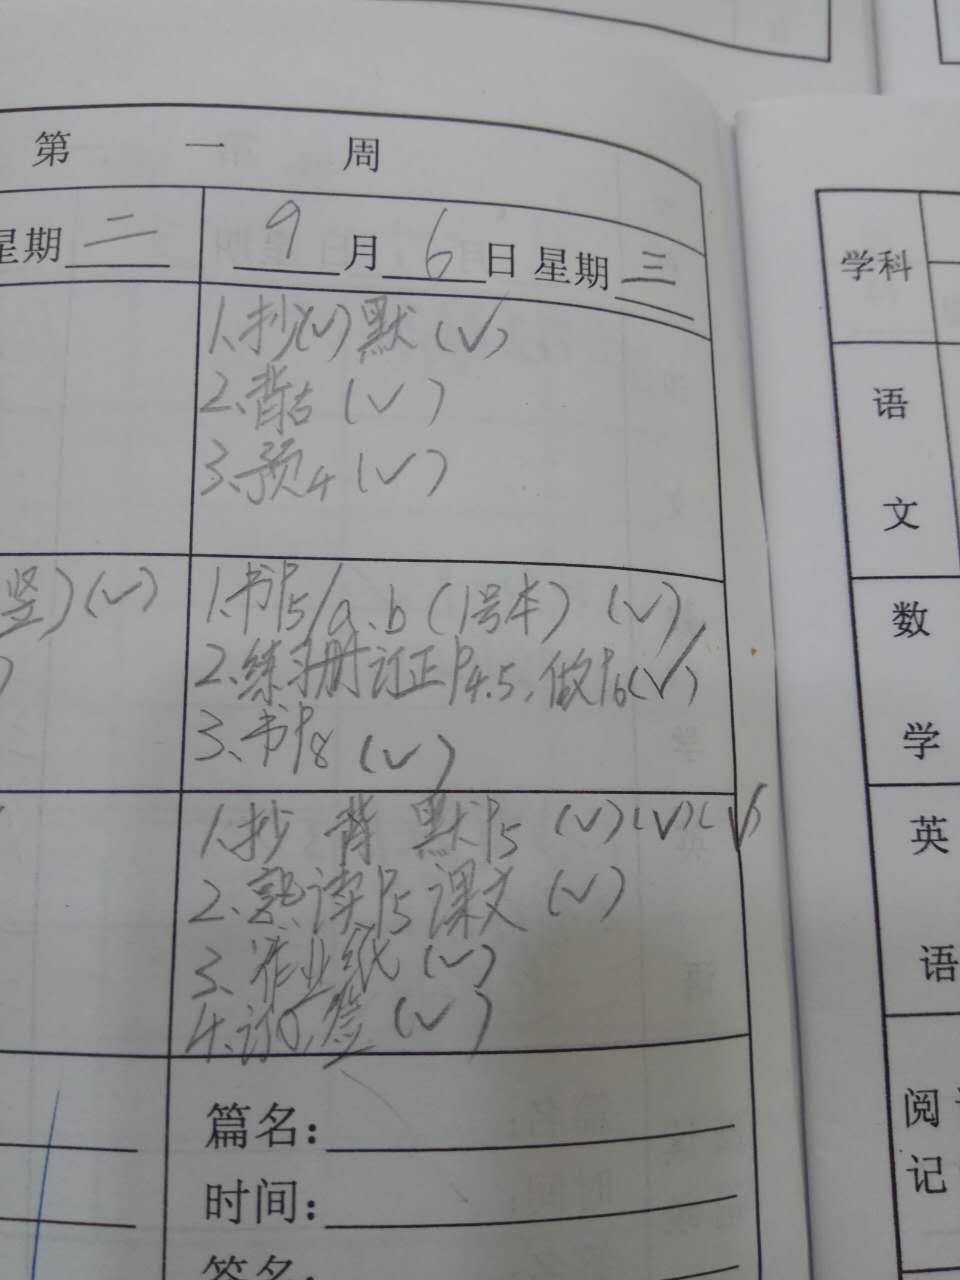 第 一 周
星期 二
9 月 6 日 星期 三
1.抄(√)默(√)
2.背古(√)
3.预4(√)
竖)(√)
)
1.书P5/a、b(1号本)(√)
2.练习册订正P4.5,做P6(√)
3.书P8(√)
1.抄 背 默P5 (√)(√)(√)
2.熟读P5课文(√)
3.作业纸(√)
4.订 签(√)
篇名:
时间:
签名:
学科
语
文
数
学
英
语
阅
记